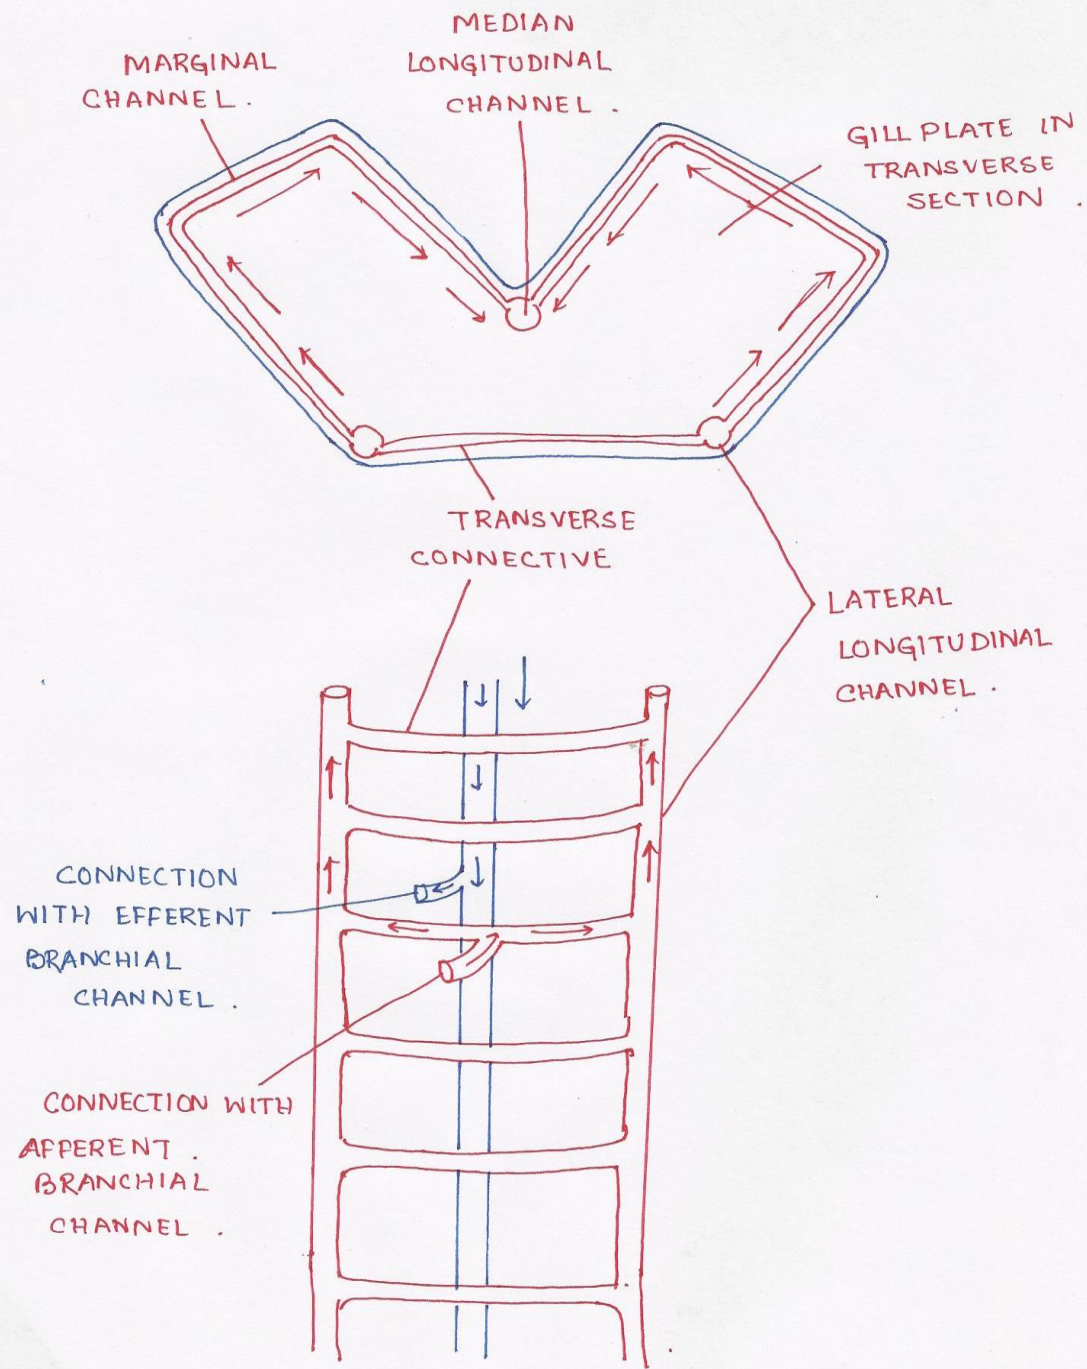 MEDIAN
LONGITUDINAL
CHANNEL .
MARGINAL
CHANNEL .
GILL PLATE IN
TRANSVERSE
SECTION .
TRANSVERSE
CONNECTIVE
LATERAL
LONGITUDINAL
CHANNEL .
CONNECTION
WITH EFFERENT
BRANCHIAL
CHANNEL .
CONNECTION WITH
AFFERENT .
BRANCHIAL
CHANNEL .